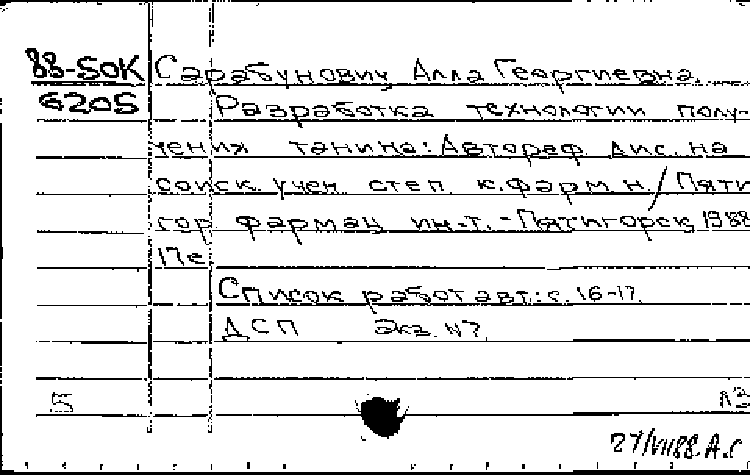 88-5OK Сарабунович, Алла Георгиевна.
6205 Разработка технологии полу-
чения танина: Автореф. дис. на
соиск. учен. степ. к.фарм.н. / Пяти
гор. фармац. ин-т. - Пятигорск, 1988
17 с.
Список работ авт.: с. 16-17.
ДСП Экз. №7.
5 ЛЗ
27/VII88. А.С